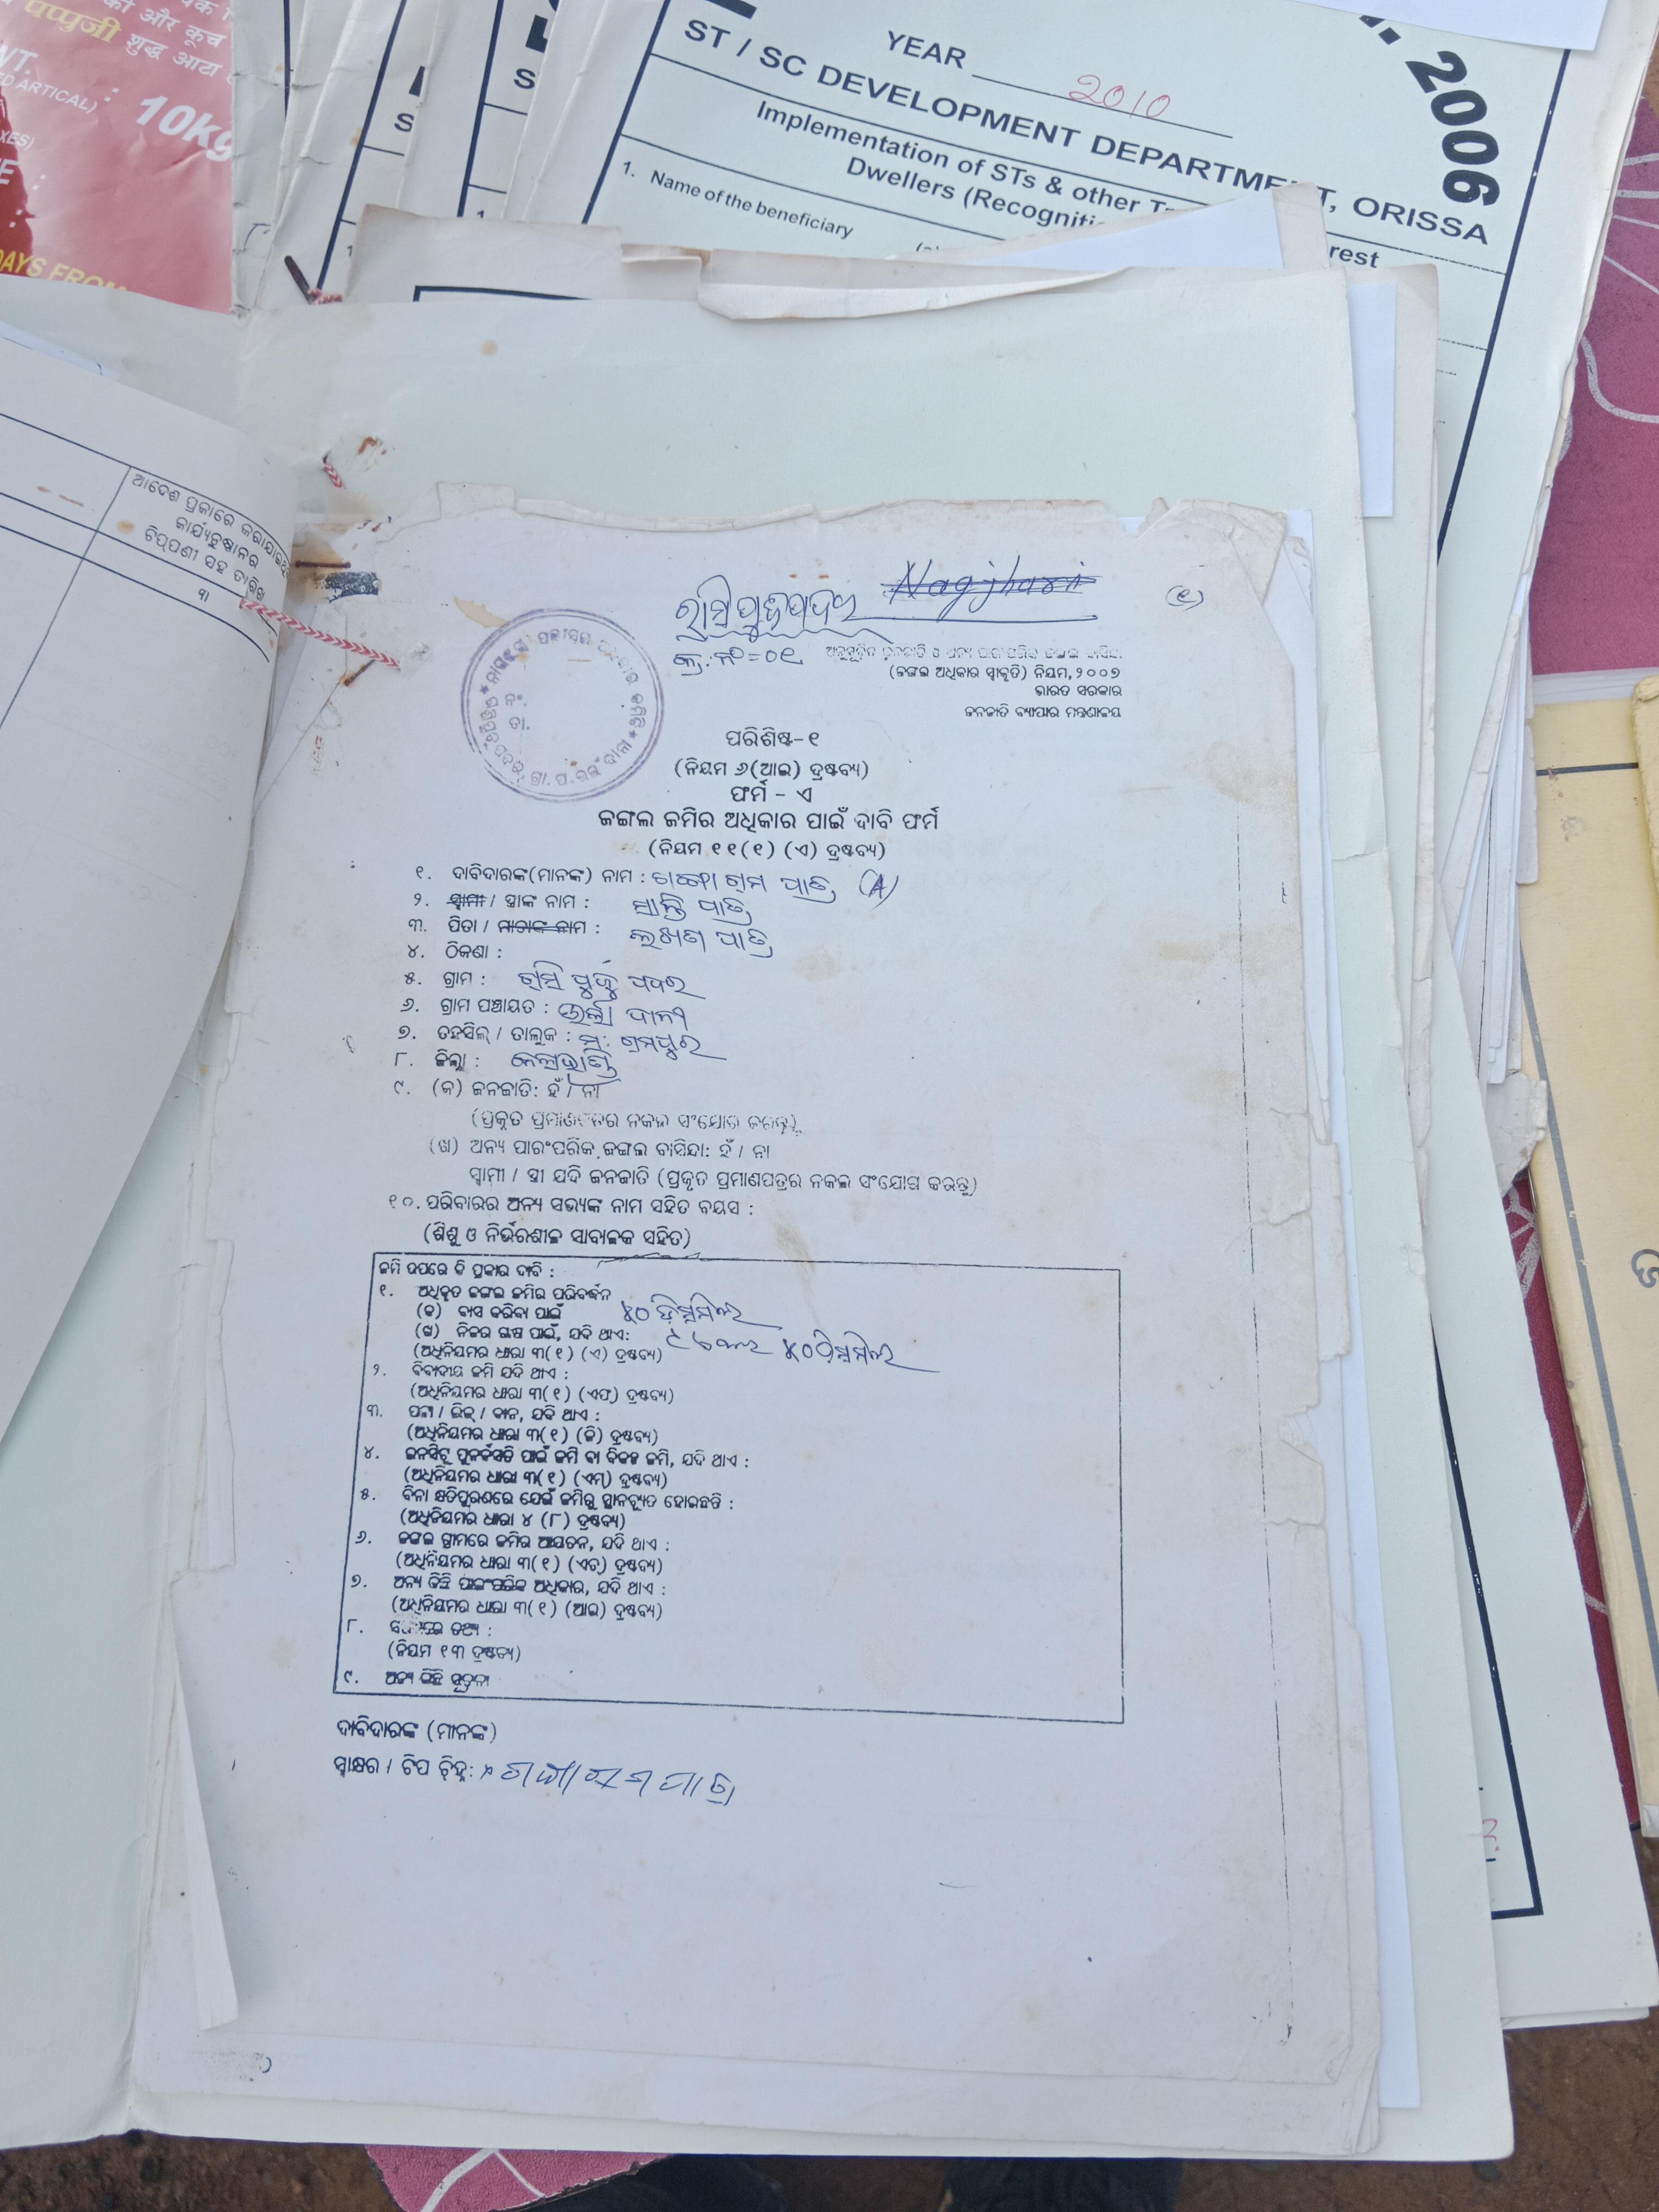 पप्पुजी शुद्ध आटा
ARTICAL) :
10kg
DAYS FROM
YEAR 2010
ST / SC DEVELOPMENT DEPARTMENT, ORISSA
, 2006
Implementation of STs & other
Dwellers (Recogniti
rest
1. Name of the beneficiary
ଆଦେଶ ପ୍ରକାରେ କରାଯାଇଥିବା
କାର୍ଯ୍ୟାନୁଷ୍ଠାନର
ଟିପ୍ପଣୀ ସହ ତାରିଖ
୩
Nagjhari
(୧)
କ୍ର.ନଂ=୦୧
ଅନୁସୂଚିତ ଜନଜାତି ଓ ଅନ୍ୟ ପାରଂପରିକ ଜଙ୍ଗଲ ବାସିନ୍ଦା
(ଜଙ୍ଗଲ ଅଧିକାର ସ୍ୱୀକୃତି) ନିୟମ,୨୦୦୭
ଭାରତ ସରକାର
ଜନଜାତି ବ୍ୟାପାର ମନ୍ତ୍ରଣାଳୟ
ନଂ.
ତା.
ପରିଶିଷ୍ଟ-୧
(ନିୟମ ୬(ଆଇ) ଦ୍ରଷ୍ଟବ୍ୟ)
ଫର୍ମ - ଏ
ଜଙ୍ଗଲ ଜମିର ଅଧିକାର ପାଇଁ ଦାବି ଫର୍ମ
(ନିୟମ ୧୧(୧) (ଏ) ଦ୍ରଷ୍ଟବ୍ୟ)
୧. ଦାବିଦାରଙ୍କ(ମାନଙ୍କ) ନାମ : ପାତ୍ର (A)
୨. ସ୍ୱାମୀ / ସ୍ତ୍ରୀଙ୍କ ନାମ : ପାତ୍ର
୩. ପିତା / ମାତାଙ୍କ ନାମ : ଲଖଣ ପାତ୍ର
୪. ଠିକଣା :
୫. ଗ୍ରାମ : ପଦର
୬. ଗ୍ରାମ ପଞ୍ଚାୟତ : ଉର୍ଲାଦାନୀ
୭. ତହସିଲ୍ / ତାଲୁକ : ମ: ରାମପୁର
୮. ଜିଲ୍ଲା : କଳାହାଣ୍ଡି
୯. (କ) ଜନଜାତି: ହଁ / ନା
(ପ୍ରକୃତ ପ୍ରମାଣପତ୍ରର ନକଲ ସଂଯୋଗ କରନ୍ତୁ)
(ଖ) ଅନ୍ୟ ପାରଂପରିକ ଜଙ୍ଗଲ ବାସିନ୍ଦା: ହଁ / ନା
ସ୍ୱାମୀ / ସ୍ତ୍ରୀ ଯଦି ଜନଜାତି (ପ୍ରକୃତ ପ୍ରମାଣପତ୍ରର ନକଲ ସଂଯୋଗ କରନ୍ତୁ)
୧୦. ପରିବାରର ଅନ୍ୟ ସଭ୍ୟଙ୍କ ନାମ ସହିତ ବୟସ :
(ଶିଶୁ ଓ ନିର୍ଭରଶୀଳ ସାବାଳକ ସହିତ)
ଜମି ଉପରେ କି ପ୍ରକାର ଦାବି :
୧. ଅଧିକୃତ ଜଙ୍ଗଲ ଜମିର ପରିବର୍ଦ୍ଧନ
(କ) ବାସ କରିବା ପାଇଁ ୪୦ ଡିସମିଲ
(ଖ) ନିଜର ଚାଷ ପାଇଁ, ଯଦି ଥାଏ: ୯ ଏକର ୪୦ଡିସମିଲ
(ଅଧିନିୟମର ଧାରା ୩(୧) (ଏ) ଦ୍ରଷ୍ଟବ୍ୟ)
୨. ବିବାଦୀୟ ଜମି ଯଦି ଥାଏ :
(ଅଧିନିୟମର ଧାରା ୩(୧) (ଏଫ୍) ଦ୍ରଷ୍ଟବ୍ୟ)
୩. ପଟ୍ଟା / ଲିଜ୍ / ଦାନ, ଯଦି ଥାଏ :
(ଅଧିନିୟମର ଧାରା ୩(୧) (ଜି) ଦ୍ରଷ୍ଟବ୍ୟ)
୪. ଇନସିଟୁ ପୁନର୍ବସତି ପାଇଁ ଜମି ବା ବିକଳ୍ପ ଜମି, ଯଦି ଥାଏ :
(ଅଧିନିୟମର ଧାରା ୩(୧) (ଏମ୍) ଦ୍ରଷ୍ଟବ୍ୟ)
୫. ବିନା କ୍ଷତିପୂରଣରେ ଯେଉଁ ଜମିରୁ ସ୍ଥାନଚ୍ୟୁତ ହୋଇଛନ୍ତି :
(ଅଧିନିୟମର ଧାରା ୪ (୮) ଦ୍ରଷ୍ଟବ୍ୟ)
୬. ଜଙ୍ଗଲ ଗ୍ରାମରେ ଜମିର ଆୟତନ, ଯଦି ଥାଏ :
(ଅଧିନିୟମର ଧାରା ୩(୧) (ଏଚ୍) ଦ୍ରଷ୍ଟବ୍ୟ)
୭. ଅନ୍ୟ କିଛି ପାରଂପରିକ ଅଧିକାର, ଯଦି ଥାଏ :
(ଅଧିନିୟମର ଧାରା ୩(୧) (ଆଇ) ଦ୍ରଷ୍ଟବ୍ୟ)
୮. ତଥ୍ୟ :
(ନିୟମ ୧୩ ଦ୍ରଷ୍ଟବ୍ୟ)
୯. ଅନ୍ୟ କିଛି ସୂଚନା
ଦାବିଦାରଙ୍କ (ମାନଙ୍କ)
ସ୍ୱାକ୍ଷର / ଟିପ ଚିହ୍ନ: ପାତ୍ର